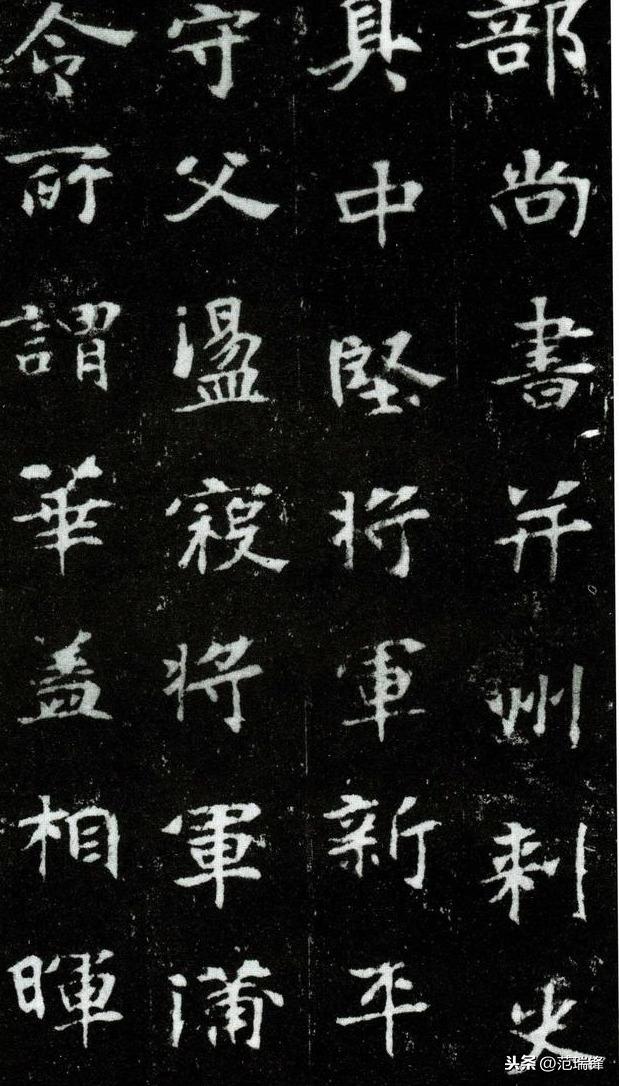 部尚書并州刺史
真中堅將軍新平
守父盪寇將軍蒲
令所謂華蓋相暉
头条 @范瑞锋